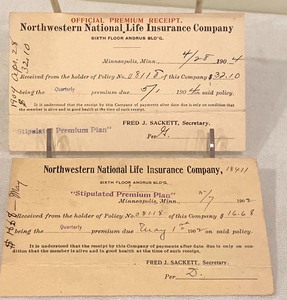 OFFICIAL PREMIUM RECEIPT.
Northwestern National Life Insurance Company
SIXTH FLOOR ANDRUS BLD'G.
Minneapolis, Minn., 4/28 1904
Received from the holder of Policy No. 28118 of this Company $32.10
being the Quarterly premium due 5/1 1904 on said policy.
It is understood that the receipt by this Company of payments after date due is only on condition that the
member is alive and in good health at the time of such receipt.
"Stipulated Premium Plan"
FRED J. SACKETT, Secretary.
Per
$32.10
Northwestern National Life Insurance Company,
SIXTH FLOOR ANDRUS BLDG.
"Stipulated Premium Plan"
Minneapolis, Minn., 5/7 1902
Received from the holder of Policy No. 28118 of this Company $16.68
being the Quarterly premium due May 1st 1902 on said policy.
It is understood that the receipt by this Company of payments after date due is only on con-
dition that the member is alive and in good health at the time of such receipt.
FRED J. SACKETT, Secretary.
Per D.
$16.68 May